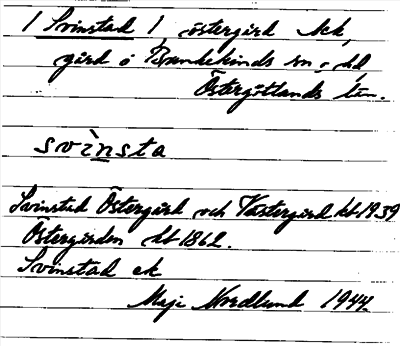 / Svinstad /, östergård Ack,
gård i Bankekinds sn o. hd
Östergötlands län.
svìnsta
Svinstad Östergård och Västergård kt 1939
Östergården kt 1862.
Svinstad ek
Maji Nordlund 1944.